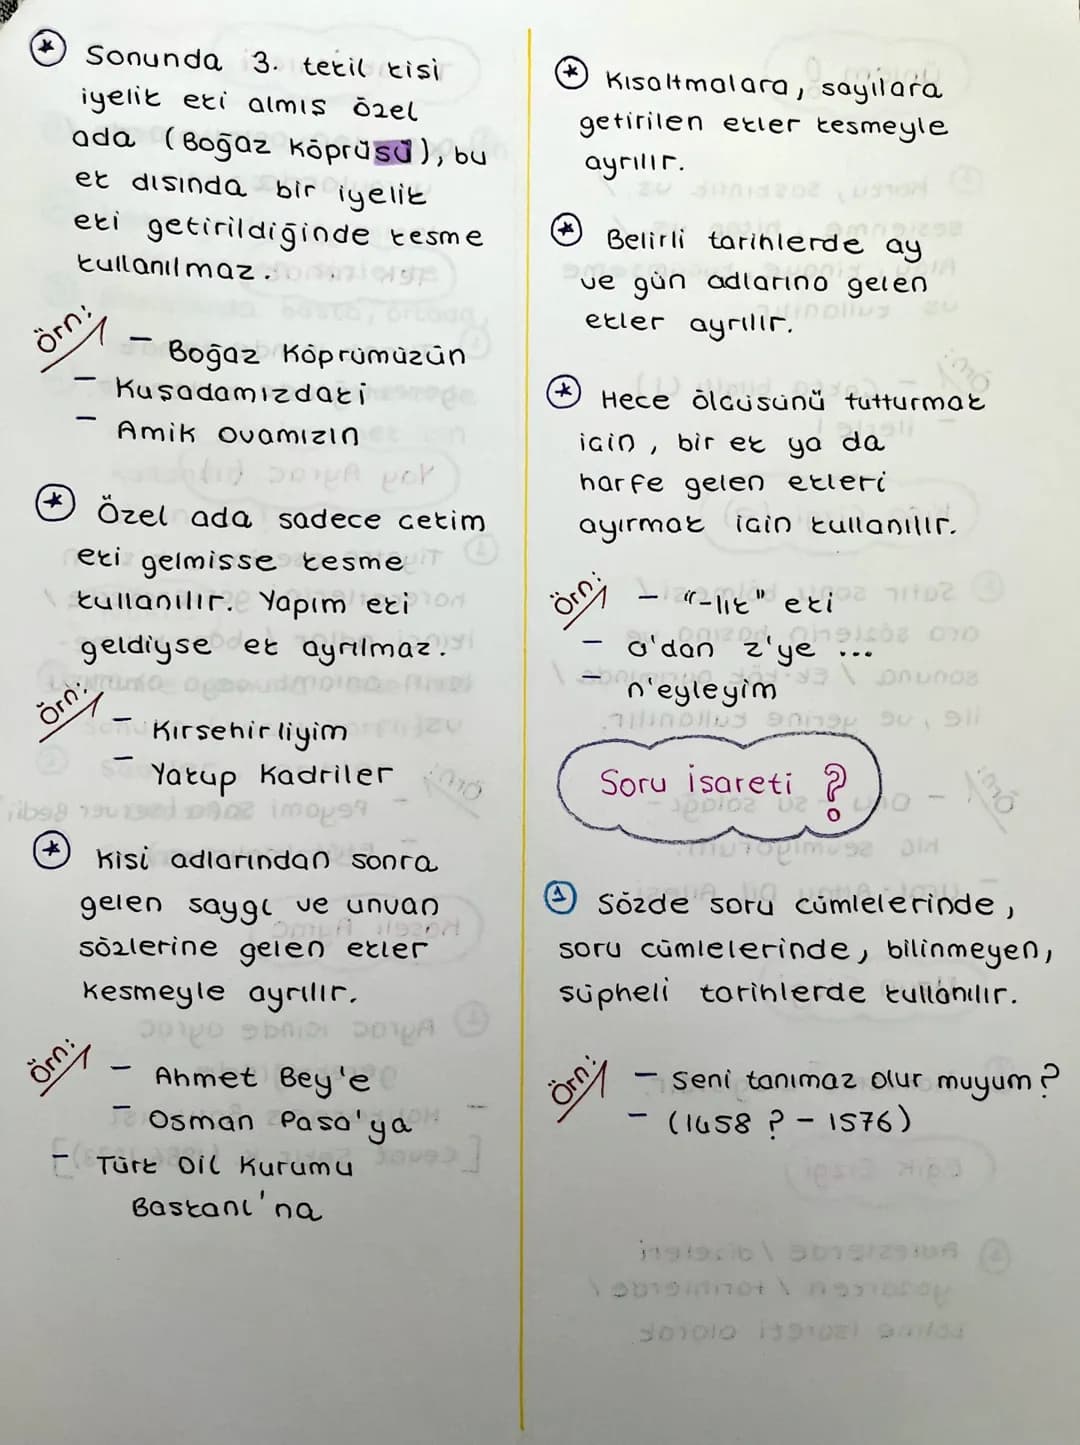 Sonunda 3. tekil kişi
iyelik eki almış özel
ada (Boğaz Köprüsü), bu
ek dışında bir iyelik
eki getirildiğinde kesme
kullanılmaz.
Örn:
- Boğaz Köprümüzün
- Kuşadamızdaki
- Amik Ovamızın
Özel ada sadece çekim
eki gelmişse kesme
kullanılır. Yapım eki
geldiyse ek ayrılmaz.
Örn:
- Kırşehirliyim
- Yakup Kadriler
Kişi adlarından sonra
gelen saygı ve unvan
sözlerine gelen ekler
kesmeyle ayrılır.
Örn:
- Ahmet Bey'e
- Osman Paşa'ya
- Türk Dil Kurumu
Başkanı'na
Kısaltmalara, sayılara
getirilen ekler kesmeyle
ayrılır.
Belirli tarihlerde ay
ve gün adlarına gelen
ekler ayrılır.
Hece ölçüsünü tutturmak
için, bir ek ya da
harfe gelen ekleri
ayırmak için kullanılır.
Örn:
- "-lik" eki
- a'dan z'ye ...
- n'eyleyim
Soru işareti ?
1 Sözde soru cümlelerinde,
soru cümlelerinde, bilinmeyen,
şüpheli tarihlerde kullanılır.
Örn:
- Seni tanımaz olur muyum?
- (1458 ? - 1576)